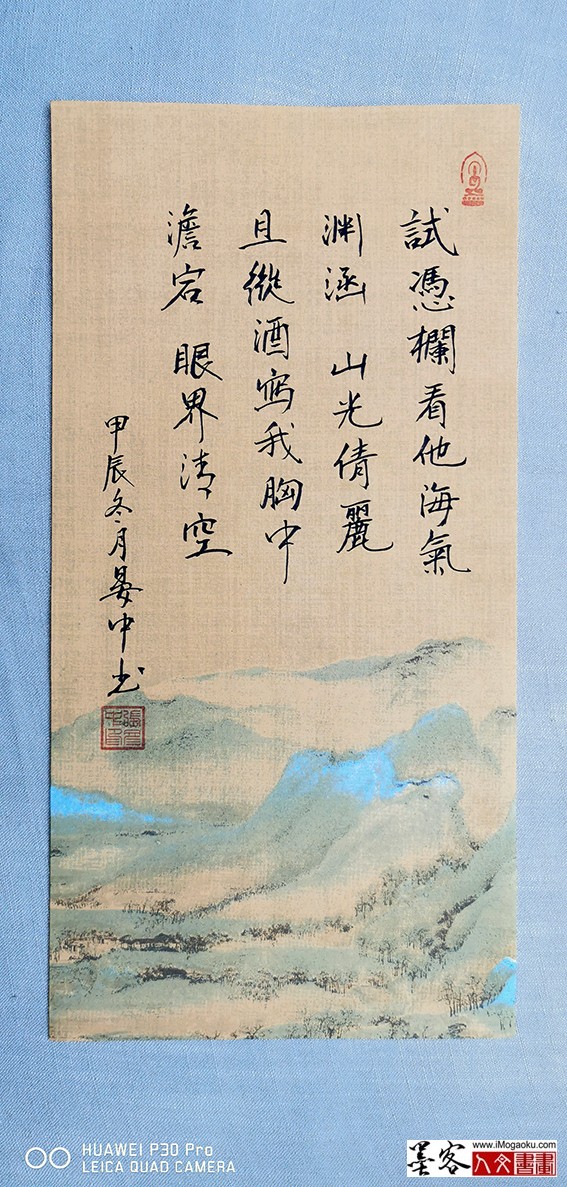 試憑欄看他海氣
渊涵 山光倩麗
且縱酒寫我胸中
澹宕 眼界清空
甲辰冬月晏中书
HUAWEI P30 Pro
LEICA QUAD CAMERA
墨客
www.iMogaoku.com
人文書畫